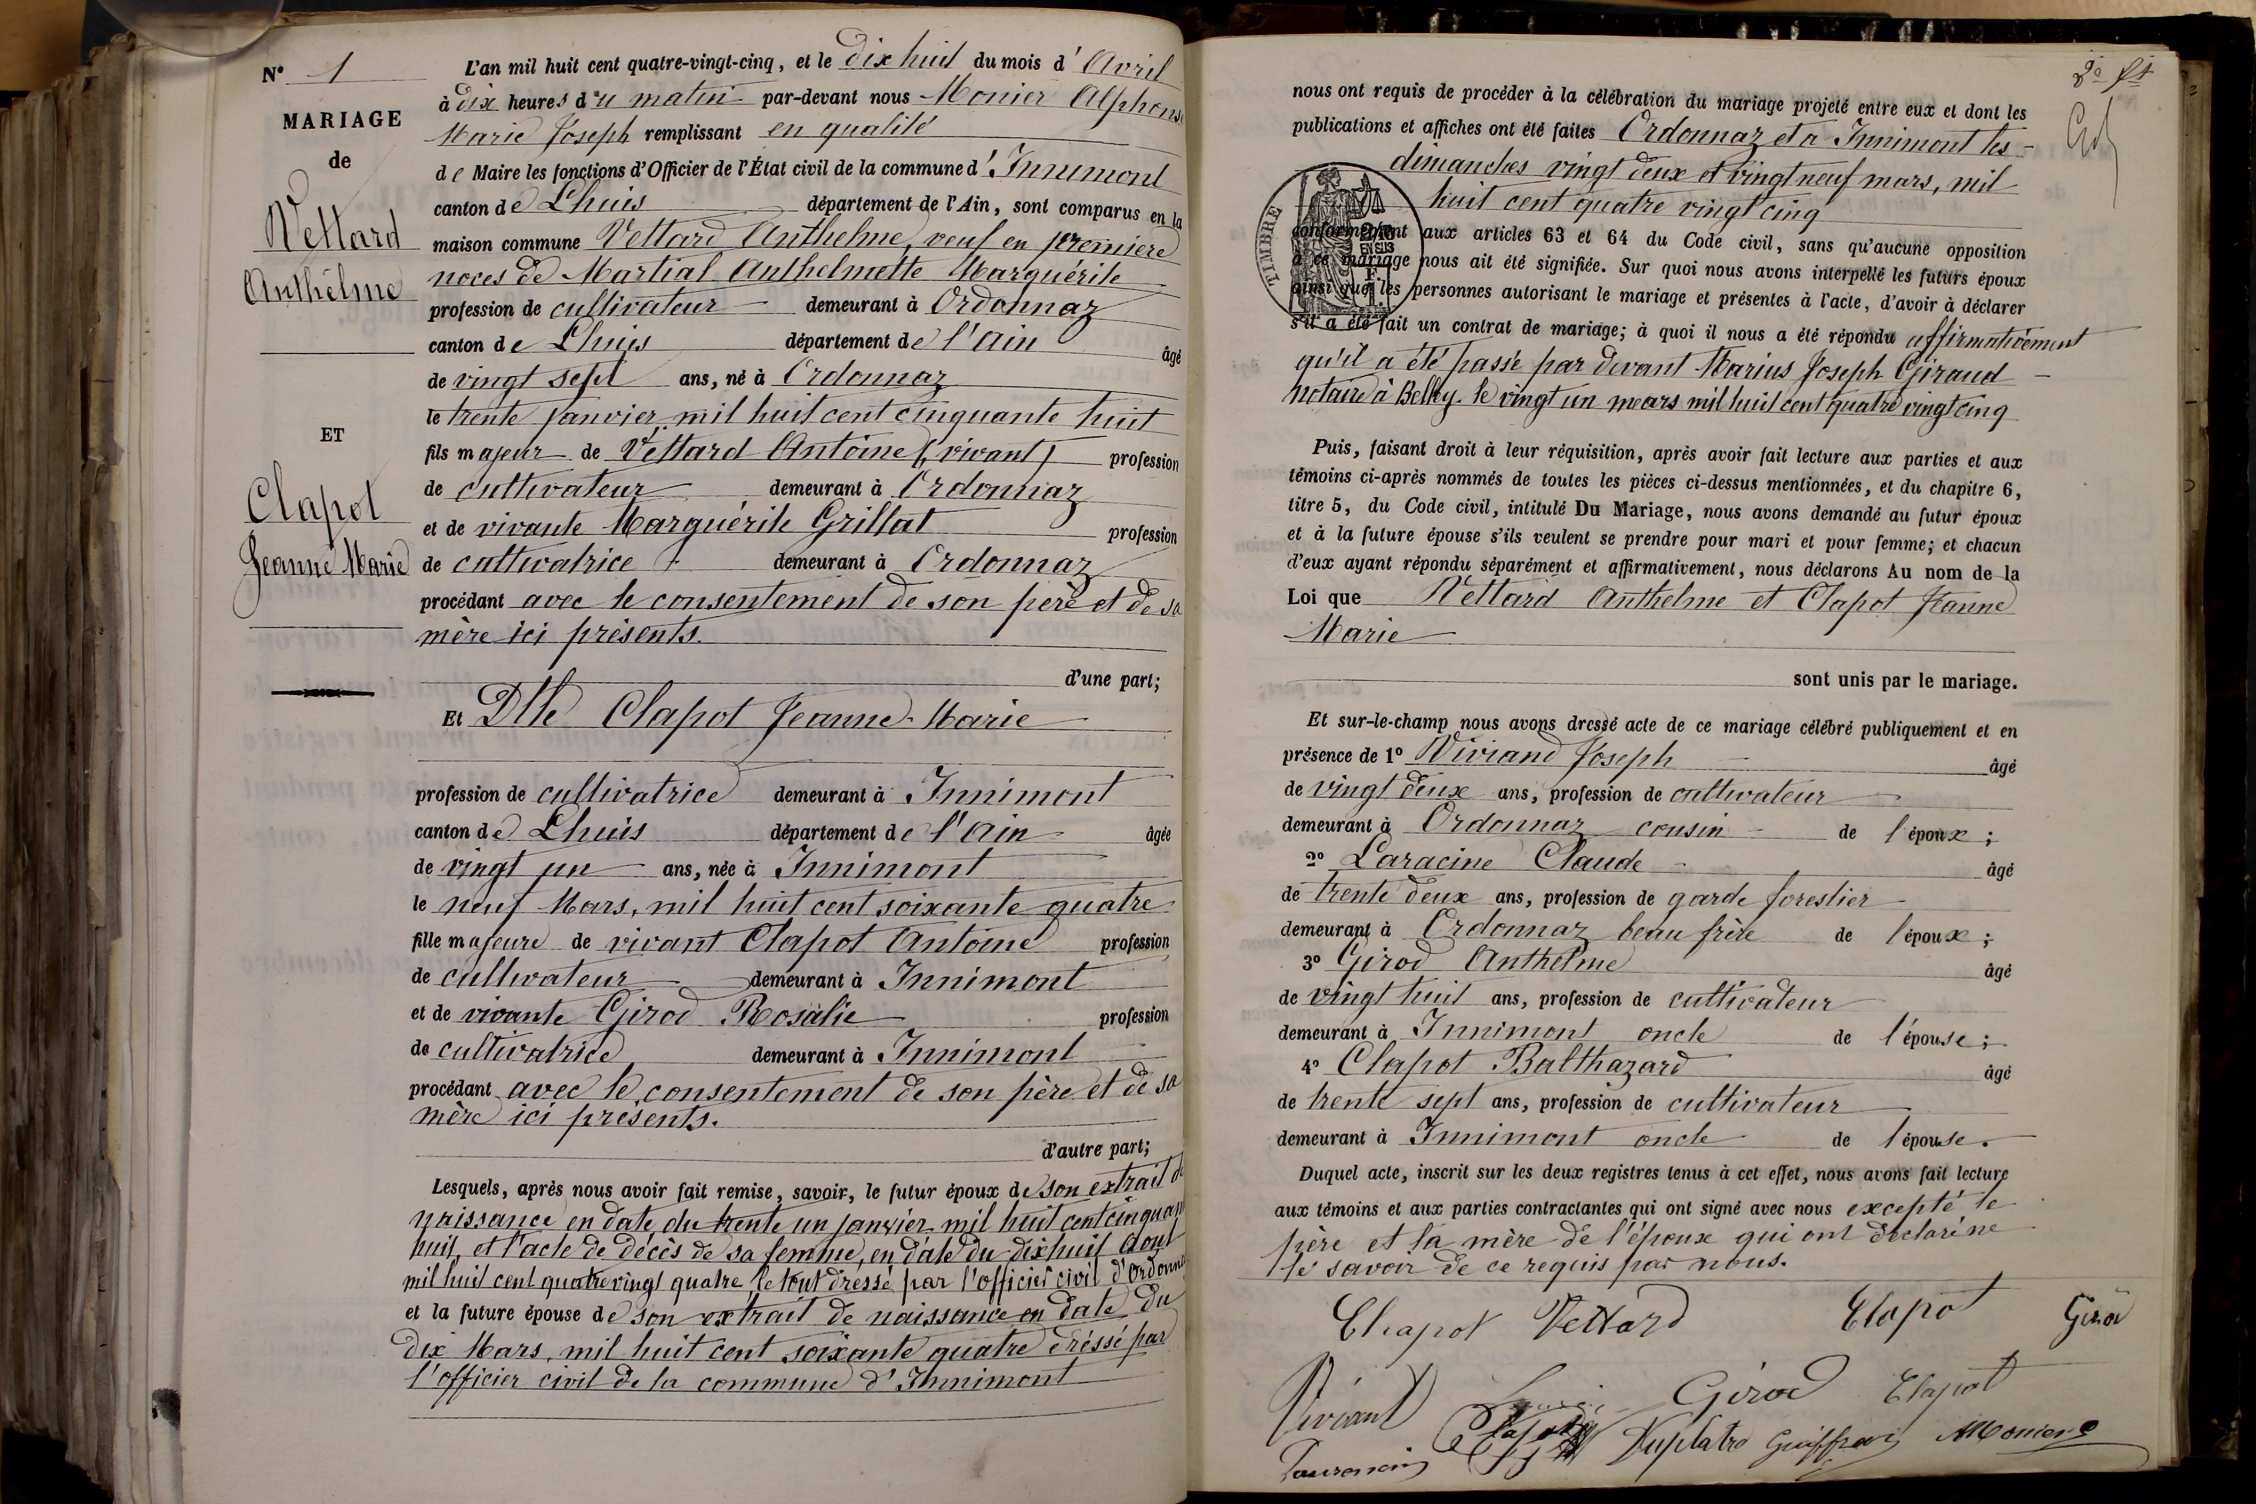 N° 1
MARIAGE
de
Vettard
Anthelme
ET
Clapot
Jeanne Marie
L'an mil huit cent quatre-vingt-cinq, et le dix huit du mois d'Avril
à dix heures du matin par-devant nous Monier Alphonse
Marie Joseph remplissant en qualité
de Maire les fonctions d'Officier de l'État civil de la commune d'Innimont
canton de Lhuis département de l'Ain, sont comparus en la
maison commune Vettard Anthelme, veuf en première
noces de Martial Anthelmette Marguérite
profession de cultivateur demeurant à Ordonnaz
canton de Lhuis département de l'Ain âgé
de vingt sept ans, né à Ordonnaz
le trente janvier mil huit cent cinquante huit
fils majeur de Vettard Antoine (vivant) profession
de cultivateur demeurant à Ordonnaz
et de vivante Marguérite Grillat profession
de cultivatrice demeurant à Ordonnaz
procédant avec le consentement de son père et de sa
mère ici présents.
d'une part;
Et Dlle Clapot Jeanne-Marie
profession de cultivatrice demeurant à Innimont
canton de Lhuis département de l'Ain âgée
de vingt un ans, née à Innimont
le neuf Mars, mil huit cent soixante quatre
fille majeure de vivant Clapot Antoine profession
de cultivateur demeurant à Innimont
et de vivante Girod Rosalie profession
de cultivatrice demeurant à Innimont
procédant avec le consentement de son père et de sa
mère ici présents.
d'autre part;
Lesquels, après nous avoir fait remise, savoir, le futur époux de son extrait de
naissance en date du trente un janvier mil huit cent cinquante
huit, et l'acte de décès de sa femme, en date du dix huit Aout
mil huit cent quatre vingt quatre, le tout dressé par l'officier civil d'Ordonnaz
et la future épouse de son extrait de naissance en date du
dix Mars, mil huit cent soixante quatre dréssé par
l'officier civil de la commune d'Innimont
2e ft
nous ont requis de procéder à la célébration du mariage projeté entre eux et dont les
publications et affiches ont été faites Ordonnaz et a Innimont les
dimanches vingt deux et vingt neuf mars, mil
huit cent quatre vingt cinq
TIMBRE
conformément aux articles 63 et 64 du Code civil, sans qu'aucune opposition
à ce mariage nous ait été signifiée. Sur quoi nous avons interpellé les futurs époux
ainsi que les personnes autorisant le mariage et présentes à l'acte, d'avoir à déclarer
s'il a été fait un contrat de mariage; à quoi il nous a été répondu affirmativement
qu'il a été passé par devant Marius Joseph Giraud
notaire à Belley. le vingt un mars mil huit cent quatre vingt cinq
Puis, faisant droit à leur réquisition, après avoir fait lecture aux parties et aux
témoins ci-après nommés de toutes les pièces ci-dessus mentionnées, et du chapitre 6,
titre 5, du Code civil, intitulé Du Mariage, nous avons demandé au futur époux
et à la future épouse s'ils veulent se prendre pour mari et pour femme; et chacun
d'eux ayant répondu séparément et affirmativement, nous déclarons Au nom de la
Loi que Vettard Anthelme et Clapot Jeanne
Marie
sont unis par le mariage.
Et sur-le-champ nous avons dressé acte de ce mariage célébré publiquement et en
présence de 1° Viviand Joseph âgé
de vingt deux ans, profession de cultivateur
demeurant à Ordonnaz cousin de l'époux;
2° Laracine Claude âgé
de trente deux ans, profession de garde forestier
demeurant à Ordonnaz beau frère de l'époux;
3° Girod Anthelme âgé
de vingt huit ans, profession de cultivateur
demeurant à Innimont oncle de l'épouse;
4° Clapot Balthazard âgé
de trente sept ans, profession de cultivateur
demeurant à Innimont oncle de l'épouse.
Duquel acte, inscrit sur les deux registres tenus à cet effet, nous avons fait lecture
aux témoins et aux parties contractantes qui ont signé avec nous excepté le
père et la mère de l'époux qui ont déclaré ne
le savoir de ce requis par nous.
Clapot Vettard Clapot Girod
Viviand Girod Clapot
Monier